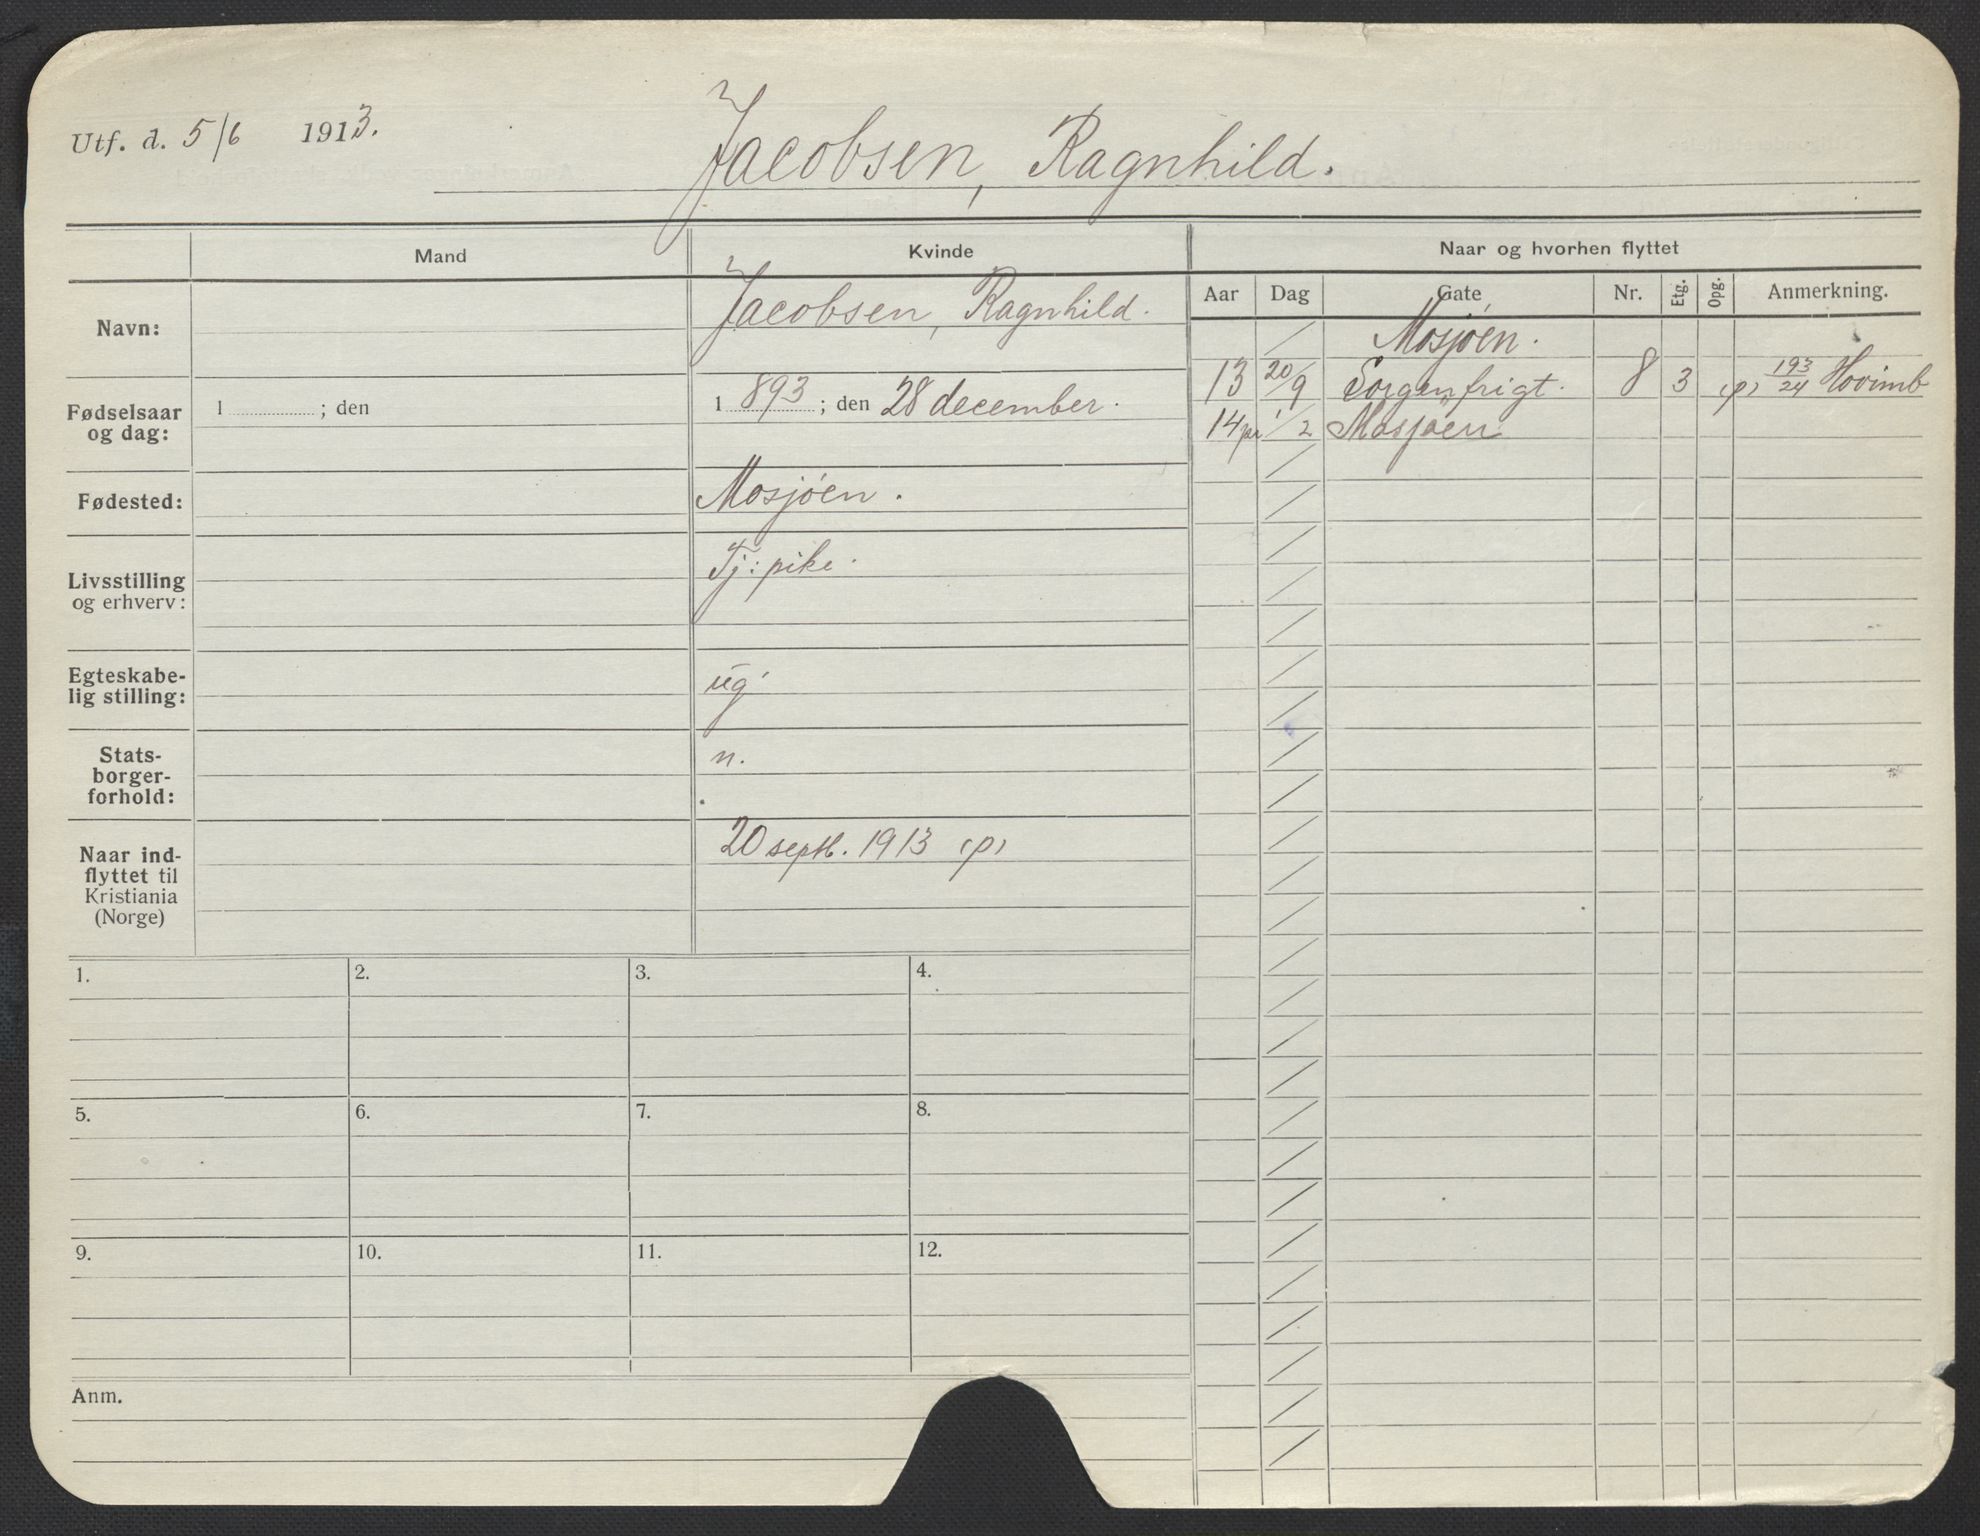 Utf. d. 5/6 1913.
Jacobsen, Ragnhild.
Mand
Kvinde
Naar og hvorhen flyttet
Aar Dag Gate Nr. Etg. Opg. Anmerkning.
Navn:
Jacobsen, Ragnhild.
Mosjøen.
13 20/9 Sorgenfrigt. 8 3 (p) 193/24 Hovimb
14 pr 1/2 Mosjøen
Fødselsaar
og dag:
1 ; den
1 893 ; den 28 december.
Fødested:
Mosjøen.
Livsstilling
og erhverv:
Tj: pike.
Egteskabe-
lig stilling:
ug
Stats-
borger-
forhold:
n.
Naar ind-
flyttet til
Kristiania
(Norge)
20 septb. 1913 (p)
1. 2. 3. 4.
5. 6. 7. 8.
9. 10. 11. 12.
Anm.